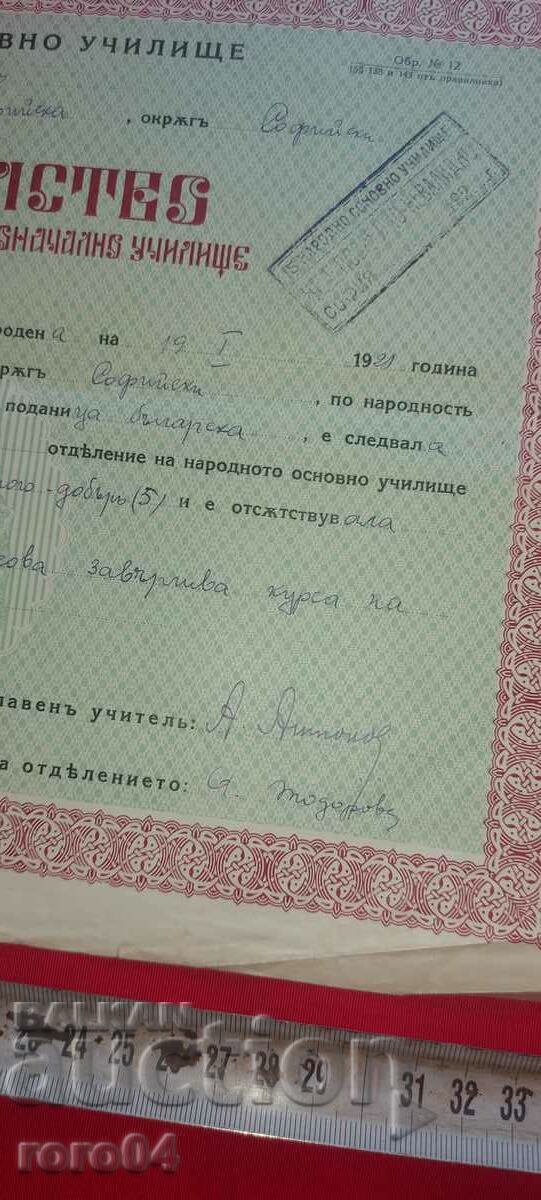 ВНО УЧИЛИЩЕ
Обр. № 12
(§§ 138 и 143 отъ правилника)
офийска, окрѫгъ Софийски
СТВО
ВОНАЧАЛНО УЧИЛИЩЕ
НАРОДНО ОСНОВНО УЧИЛИЩЕ
СОФИЯ
193 г.
родена на 19. I 1921 година
рѫгъ Софийски, по народность
подданица българска, е следвала
отдѣление на народното основно училище
ого-добъръ (5) и е отсѫтствувала
завършва курса на
лавенъ учитель: А. Антонов
а отдѣлението: Я. Тодорова
24 25 27 28 29 31 32 33
BALKAN
auction
roro04